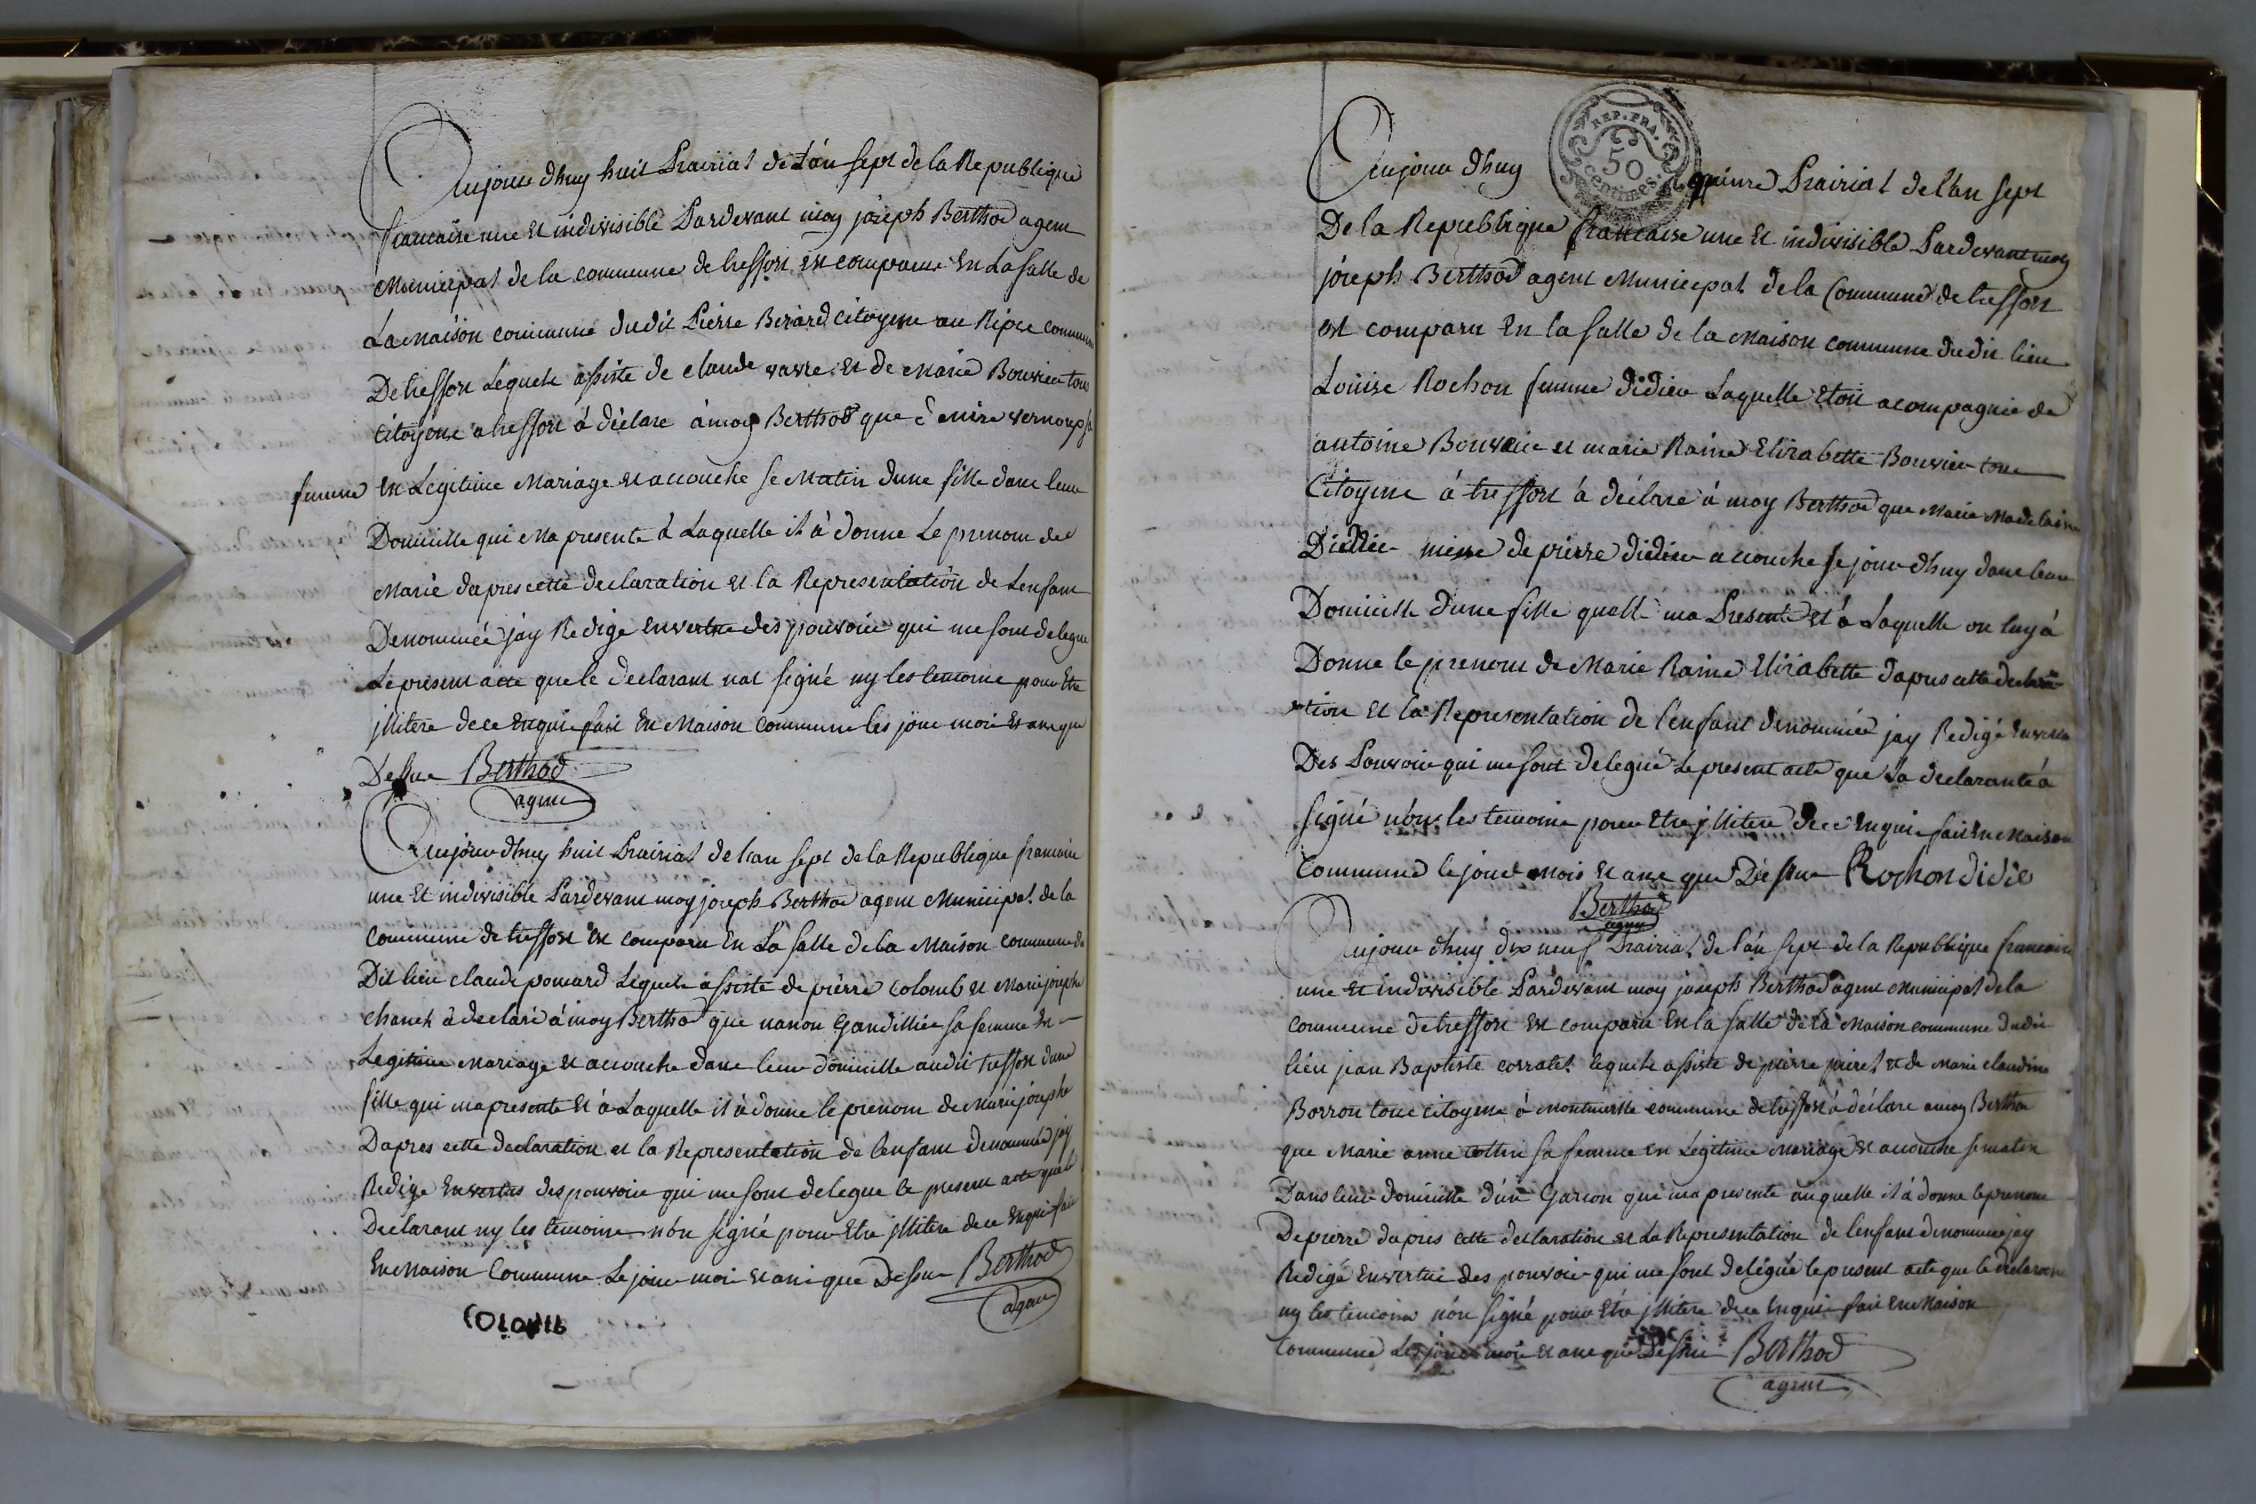 Aujour dhuy huit Prairial de L'an sept de la Republique
francaise une et indivisible Pardevant moy joseph Berthod agent
Municipal de la commune de treffort est comparue En La Salle de
La maison commune dudit Pierre Berard citoyene au commune
De treffort Lequele assiste de claude vavre et de marie Bouvier tous
Citoyene a treffort á déclare á moy Berthod que vernoup sa
femme En Legitime Mariage est accouche se Matin dune fille dans leur
Domicille qui Ma presenté & Laquelle il á donne Le prenom de
Marie dapres cette declaration et la Representation de Lenfant
Denommée jay Redige en vertue des pouvoir qui me sont delegue
Le present acte que le declarant na signé ny les temoins pour Etre
jllitere de ce Enquis fait En Maison Commune les jour mois et ans que
Dessus Berthod
agent
Aujour dhuy huit Prairial de l'an sept de la Republique francaise
une Et indivisible Pardevant moy joseph Berthod agent Municipal de la
Commune de treffort Est comparu En La Salle de la Maison commune du
Dit lieu claude ponsard Lequele assiste de pierre Colomb et Marie josephe
chanel á declaré á moy Berthod que nanon Gandillier sa femme En
Legitime Mariage Et accouche dans leur domicille audit treffort dune
fille qui ma presente Et á Laquelle il á donne le prenom de Marie josephe
Dapres cette declaration et la Representation de lenfant denommée jay
Redige En vertue des pouvoir qui me sont delegue le present acte que le
Declarant ny les temoins nón signé pour Etre jllitere de ce Enquis fait
En Maison Commune Le jour moi et ans que Dessus Berthod
agent
REP. FRA.
50
centimes.
Aujour dhuy quinze Prairial de l'an sept
De la Republique francaise une Et indivisible Pardevant moy
joseph Berthod agent Municipal de la Commune de treffort
est comparu En la Salle de la Maison commune dudit lieu
Loüise Rochon femme Didier Laquelle Etoit acompagnie de
antoine Bouvier et marie Raine Elizabette Bouvier tous
Citoyene á treffort á déclaré á moy Berthod que Marie Madelaine
de pierre didier accouche se jour dhuy dans leur
Domicille d'une fille quelle ma Presenté et á Laquelle on luy á
Donne le prenom de Marie Raine Elizabette dapres cette declara
-tion Et la Representation de l'enfant denommée jay Redigé En vertu
Des Pouvoir qui me sont delegué Le present acte que la declarante á
signé nón les temoins pour Etre jllitere de ce Enquis fait En Maison
Commune le jour mois et ans que Dessus Rochon didie
Berthod
agent
Aujour dhuy dix neuf Prairial de l'an sept de la Republique francaise
une Et indivisible Pardevant moy joseph Berthod agent Municipal de la
Commune de treffort Est comparu En la Salle de la Maison commune dudit
lieu jean Baptiste corratet lequele assiste de pierre piret et de Marie claudine
Borron tous citoyene á Montmerle commune de treffort á déclare a moy Berthod
que Marie anne sa femme en Legitime Mariage est accouche se matin
Dans leur domicille d'un Garcon qui ma presente auquelle il á donne le prenom
De pierre dapres cette declaration et La Representation de lenfant denomme jay
Redigé En vertue des pouvoir qui me sont délégué le present acte que le declarant
ny les temoins nón signé pour Etre jllitere de ce Enquis fait En Maison
Commune Les jour moi et ans que Dessus Berthod
agent